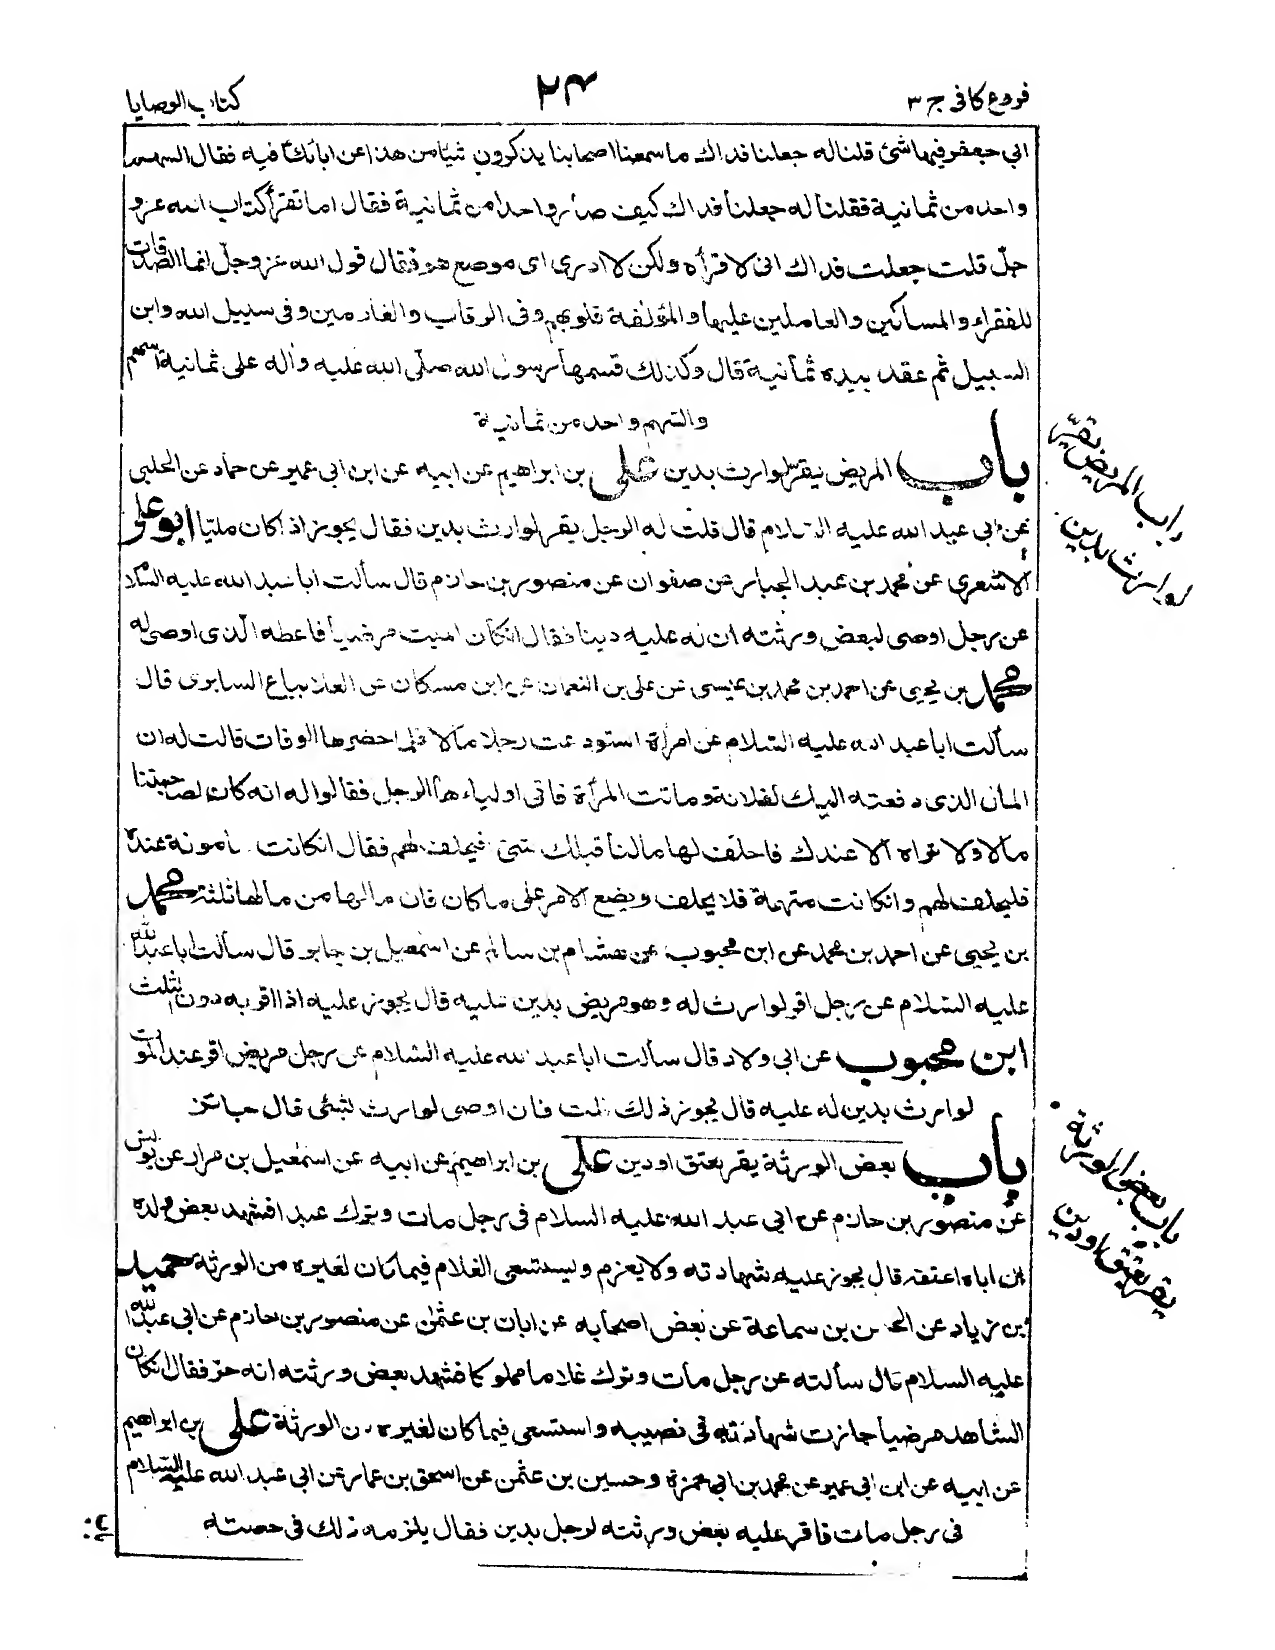 فروع كافى ج ٣
٢٤
كتاب الوصايا
ابي جعفر فيها شئ قلنا له جعلنا فداك ما سمعنا اصحابنا يذكرون شيئا من هذا عن ابائك فيه فقال السهم
واحد من ثمانية فقلنا له جعلنا فداك كيف صار واحدا من ثمانية فقال اما تقرأ كتاب الله عز و
جل قلت جعلت فداك انى لاقرأه ولكن لا ادرى اى موضع هو فقال قول الله عز وجل انما الصدقات
للفقراء والمساكين والعاملين عليها والمؤلفة قلوبهم وفى الرقاب والغارمين وفى سبيل الله وابن
السبيل ثم عقد بيده ثمانية قال وكذلك قسمها رسول الله صلى الله عليه وآله على ثمانية اسهم
والسهم واحد من ثمانية
باب المريض يقر لوارث بدين على بن ابراهيم عن ابيه عن ابن ابى عمير عن حماد عن الحلبى
عن ابى عبد الله عليه السلام قال قلت له الرجل يقر لوارث بدين فقال يجوز اذا كان مليا ابو على
الاشعرى عن محمد بن عبد الجبار عن صفوان عن منصور بن حازم قال سألت ابا عبد الله عليه السلام
عن رجل اوصى لبعض ورثته ان له عليه دينا فقال انكان الميت مرضيا فاعطه الذى اوصى له
محمد بن يحيى عن احمد بن محمد بن عيسى عن على بن النعمان عن ابن مسكان عن العلا بياع السابرى قال
سألت ابا عبد الله عليه السلام عن امرأة استودعت رجلا مالا فلما حضرها الوفات قالت له ان
المال الذى دفعته اليك لفلانة وماتت المرأة فاتى اولياءها الرجل فقالوا له انه كان لصاحبتنا
مالا ولا نراه الا عندك فاحلف لها مالنا قبلك شئ فيحلف لهم فقال انكانت مامونة عنده
فليحلف لهم وانكانت متهمة فلا يحلف ويضع الامر على ما كان فان ما لها من مالها ثلثه محمد
بن يحيى عن احمد بن محمد عن ابن محبوب عن هشام بن سالم عن اسمعيل بن جابر قال سألت ابا عبد الله
عليه السلام عن رجل اقر لوارث له وهو مريض بدين عليه قال يجوز عليه اذا اقر به دون الثلث
ابن محبوب عن ابى ولاد قال سألت ابا عبد الله عليه السلام عن رجل مريض اقر عند الموت
لوارث بدين له عليه قال يجوز ذلك قلت فان اوصى لوارث بشئ قال جائز
باب بعض الورثة يقر بعتق او دين على بن ابراهيم عن ابيه عن اسمعيل بن مرار عن يونس
عن منصور بن حازم عن ابى عبد الله عليه السلام فى رجل مات وترك عبدا فشهد بعض ولده
ان اباه اعتقه قال يجوز عليه شهادته ولا يغرم ويستسعى الغلام فيما كان لغيره من الورثة حميد
بن زياد عن الحسن بن سماعة عن بعض اصحابه عن ابان بن عثمن عن منصور بن حازم عن ابى عبد الله
عليه السلام قال سألته عن رجل مات وترك غلاما مملوكا فشهد بعض ورثته انه حر فقال انكان
الشاهد مرضيا جازت شهادته فى نصيبه واستسعى فيما كان لغيره من الورثة على بن ابراهيم
عن ابيه عن ابن ابى عمير عن محمد بن ابى حمزة وحسين بن عثمن عن اسحق بن عمار عن ابى عبد الله عليه السلام
فى رجل مات فاقر عليه بعض ورثته لرجل بدين فقال يلزمه ذلك فى حصته
باب المريض يقر
لوارث بدين
باب بعض الورثة
يقر بعتق او دين